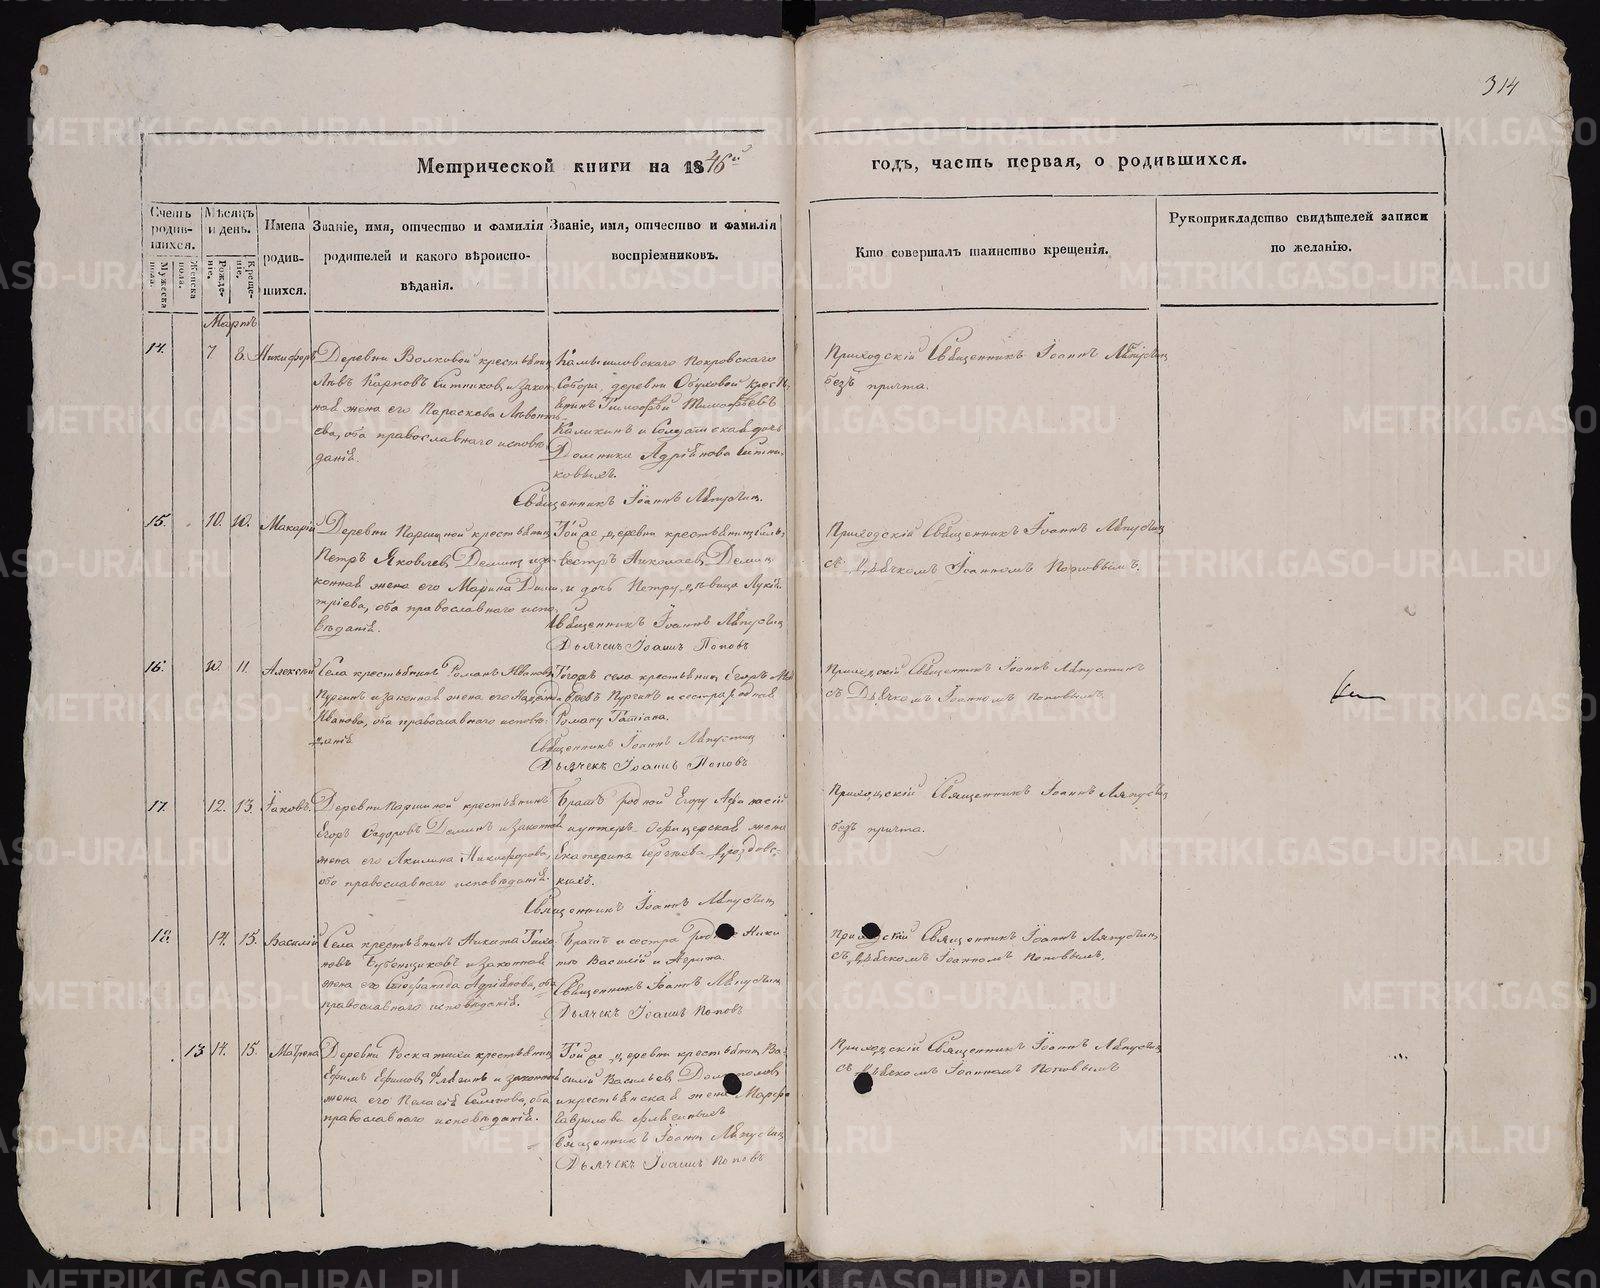 314
Метрической книги на 1846й годъ, часть первая, о родившихся.
Счетъ родив-
шихся.
Мужеска пола.
Женска пола.
Мѣсяцъ и день.
Рожде-
ніе.
Креще-
ніе.
Имена
родив-
шихся.
Званіе, имя, отчество и фамилія
родителей и какого вѣроиспо-
вѣданія.
Званіе, имя, отчество и фамилія
воспріемниковъ.
Кто совершалъ таинство крещенія.
Рукоприкладство свидѣтелей записи
по желанію.
Мартъ
14. 7 8. Никифоръ
Деревни Волковой крестьянинъ
Левъ Карповъ Ситниковъ, и закон-
ная жена его Параскова Леонть-
ева, оба православнаго исповѣ-
данія.
Камышловскаго Покровскаго
Собора, деревни Обуховой крестья-
нинъ Тимофѣй Тимофѣевъ
Каликинъ и Солдатская дочь
Домника Адріянова Ситни-
ковыхъ.
Священникъ Іоаннъ Ляпустинъ.
Приходскій Священникъ Іоаннъ Ляпустинъ
безъ причта.
15. 10. 10. Макарій
Деревни Паршиной крестьянинъ
Петръ Яковлевъ Деминъ и за-
конная жена его Марина Дими-
тріева, оба православнаго испо-
вѣданія.
Той же деревни крестьянинъ Силь-
вестръ Николаевъ Деминъ
и дочь Петру, дѣвица Лукія.
Священникъ Іоаннъ Ляпустинъ
Дьячекъ Іоаннъ Поповъ
Приходскій Священникъ Іоаннъ Ляпустинъ
съ Дьячкомъ Іоанномъ Поповымъ.
16. 10. 11. Алексѣй
Села крестьянинъ Романъ Ивановъ
Пургинъ и законная жена его
Иванова, оба православнаго исповѣ-
данія
Тогоже села крестьянинъ Егоръ
Пургинъ и сестра родная
Роману Татіана.
Священникъ Іоаннъ Ляпустинъ
Дьячекъ Іоаннъ Поповъ
Приходскій Священникъ Іоаннъ Ляпустинъ
съ Дьячкомъ Іоанномъ Поповымъ.
17. 12. 13. Іаковъ.
Деревни Паршиной крестьянинъ
Егоръ Ѳедоровъ Деминъ и законная
жена его Акилина Никифорова,
оба православнаго исповѣданія.
Братъ родной Егору Афанасій
и унтеръ-офицерская жена
Екатерина Сергѣева Дроздовс-
кихъ.
Священникъ Іоаннъ Ляпустинъ
Приходскій Священникъ Іоаннъ Ляпустинъ
безъ причта.
18. 14. 15. Василій
Села крестьянинъ Никита Тихо-
новъ Бубенщиковъ и законная
жена его Адріянова, оба
православнаго исповѣданія.
Братъ и сестра Ники-
ты Василій и
Священникъ Іоаннъ Ляпустинъ
Дьячекъ Іоаннъ Поповъ
Священникъ Іоаннъ Ляпустинъ
съ Дьячкомъ Іоанномъ Поповымъ.
13 14. 15. Матрона
Деревни Роскатихи крестьянинъ
Ефимъ Ефимовъ Флягинъ и законная
жена его Пелагія Семенова, оба
православнаго исповѣданія.
Той же деревни крестьянинъ Ва-
силій Васильевъ
и крестьянская жена Марфа
Гаврилова
Священникъ Іоаннъ Ляпустинъ
Дьячекъ Іоаннъ Поповъ
Приходскій Священникъ Іоаннъ Ляпустинъ
съ Дьячкомъ Іоанномъ Поповымъ
METRIKI.GASO-URAL.RU